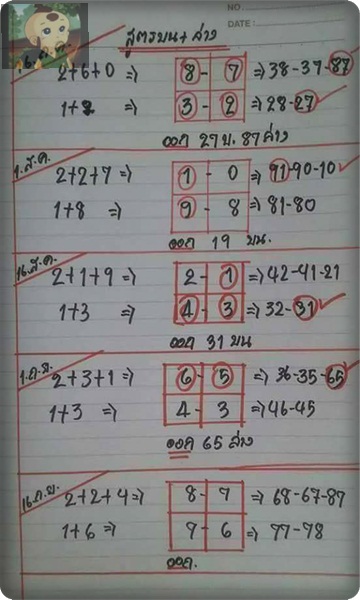 NO
DATE
สูตรบน+ล่าง
16.ก.ค.
2+6+0 ⇒ 8-7 ⇒ 38-37-87
1+2 ⇒ 3-2 ⇒ 28-27 ✓
ออก 27 บ. 87 ล่าง
1.ส.ค.
2+2+7 ⇒ 1-0 ⇒ 91-90-10 ✓
1+8 ⇒ 9-8 ⇒ 81-80
ออก 19 บน.
16.ส.ค.
2+1+9 ⇒ 2-1 ⇒ 42-41-21
1+3 ⇒ 4-3 ⇒ 32-31 ✓
ออก 31 บน
1.ก.ย.
2+3+1 ⇒ 6-5 ⇒ 36-35-65 ✓
1+3 ⇒ 4-3 ⇒ 46-45
ออก 65 ล่าง
16.ก.ย.
2+2+4 ⇒ 8-7 ⇒ 68-67-87
1+6 ⇒ 7-6 ⇒ 77-78
ออก.